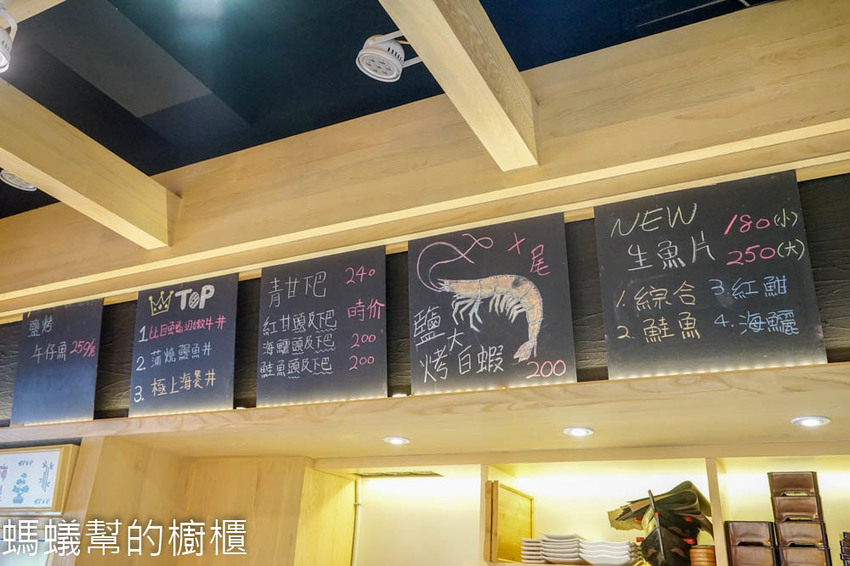 鹽烤
午仔魚 250/尾
TOP
2. 蒲燒鰻魚丼
3. 極上海景丼
青甘下巴 240
紅甘頭及下巴 時价
海鱺頭及下巴 200
鮭魚頭及下巴 200
尾
鹽烤大白蝦
200
NEW
生魚片
180(小)
250(大)
1. 綜合 3. 紅魽
2. 鮭魚 4. 海鱺
螞蟻幫的櫥櫃